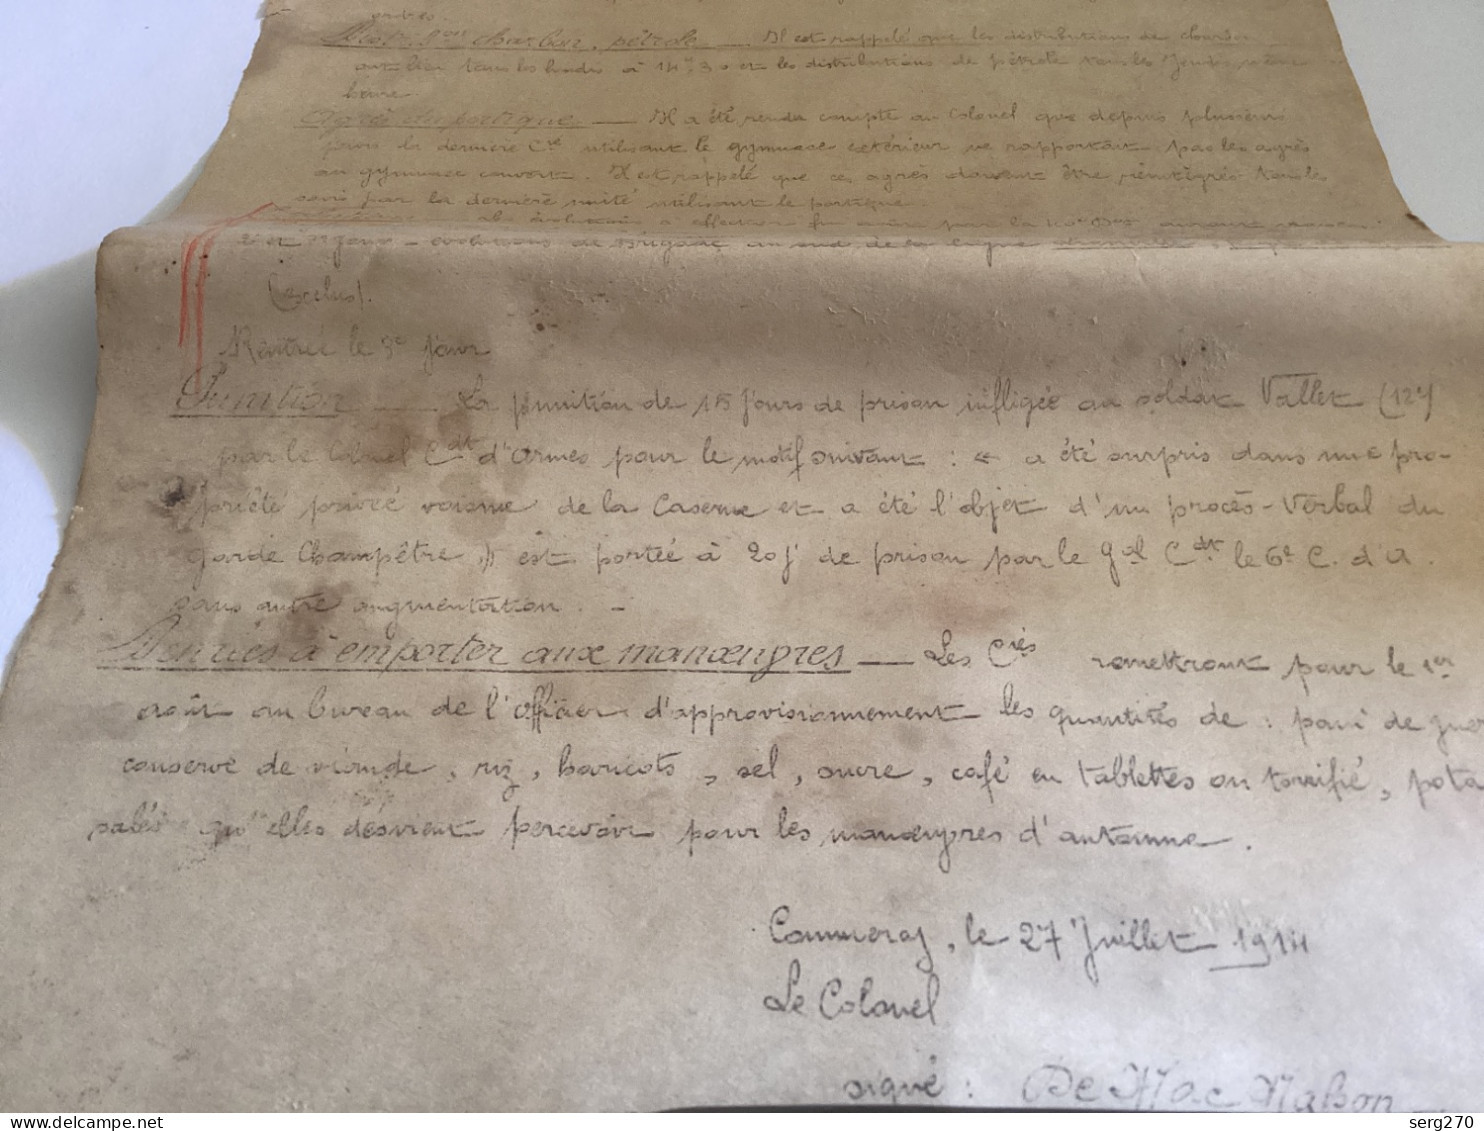 charbon, pétrole — Il est rappelé que les distributions de charbon
ont lieu tous les lundis à et les distributions de pétrole tous les même
heure.
Agrès du portique — Il a été rendu compte au Colonel que depuis plusieurs
jours la dernière Cie utilisant le gymnase extérieur ne rapportait pas les agrès
au gymnase couvert. Il est rappelé que ces agrès doivent être réintégrés tous les
soirs par la dernière unité utilisant le portique.
par la
évolutions de Brigade au sud de la ligne
(exclus).
Rentrée le 3e jour
Punition — La punition de 15 jours de prison infligée au soldat Vallet (12e)
par le Colonel Cdt d'Armes pour le motif suivant : « a été surpris dans une pro-
priété privée voisine de la Caserne et a été l'objet d'un procès-Verbal du
garde Champêtre » est portée à 20 j de prison par le Gal Cdt le 6e C. d'A.
sans autre augmentation. –
Denrées à emporter aux manœuvres — Les Cies remettront pour le 1er
août au bureau de l'officier d'approvisionnement les quantités de : pain de guer
conserve de viande, riz, haricots, sel, sucre, café en tablettes ou torrifié, pota
salés qu'elles desvient percevoir pour les manœuvres d'automne.
Commercy, le 27 Juillet 1914
Le Colonel
signé : De Mac Mahon
serg270